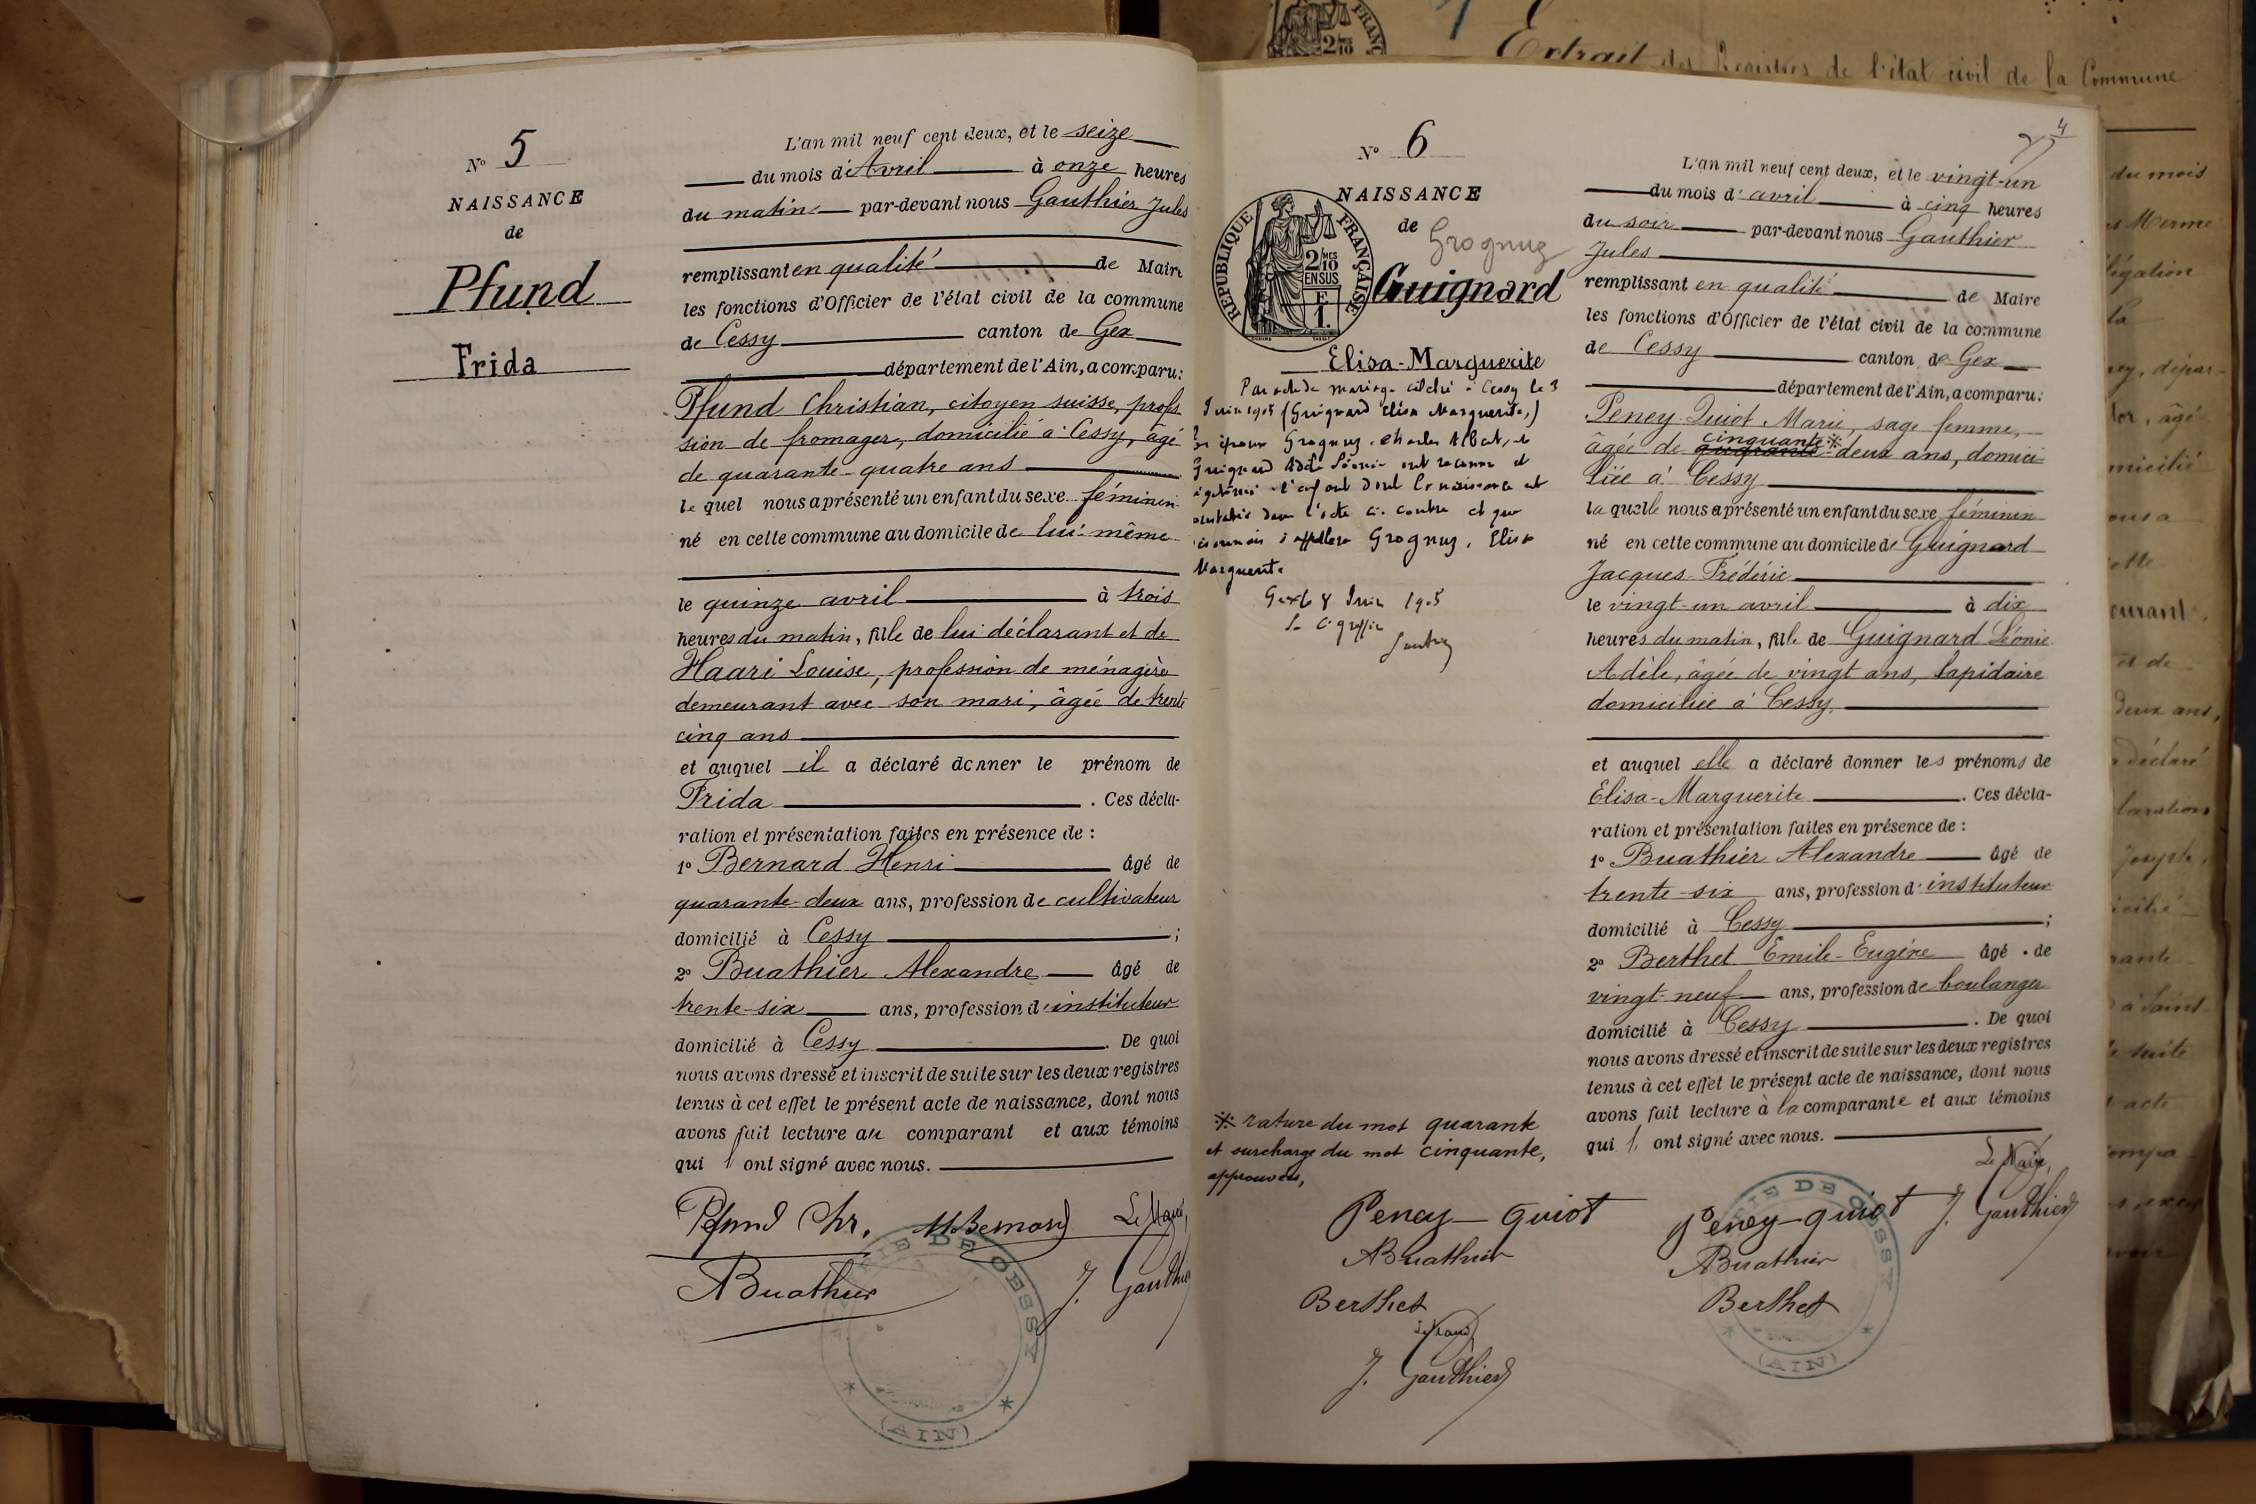 Extrait des Registres de l'état civil de la Commune
N° 5
NAISSANCE
de
Pfund
Frida
L'an mil neuf cent deux, et le seize
du mois d'Avril à onze heures
du matin par-devant nous Gauthier Jules
remplissant en qualité de Maire
les fonctions d'Officier de l'état civil de la commune
de Cessy canton de Gex
département de l'Ain, a comparu:
Pfund Christian, citoyen suisse, profes
sion de fromager, domicilié à Cessy, âgé
de quarante-quatre ans
le quel nous a présenté un enfant du sexe féminin
né en cette commune au domicile de lui-même
le quinze avril à trois
heures du matin, fille de lui déclarant et de
Haari Louise, profession de ménagère
demeurant avec son mari, âgée de trente
cinq ans
et auquel il a déclaré donner le prénom de
Frida . Ces décla-
ration et présentation faites en présence de :
1° Bernard Henri âgé de
quarante-deux ans, profession de cultivateur
domicilié à Cessy ;
2° Buathier Alexandre âgé de
trente-six ans, profession d'instituteur
domicilié à Cessy . De quoi
nous avons dressé et inscrit de suite sur les deux registres
tenus à cet effet le présent acte de naissance, dont nous
avons fait lecture au comparant et aux témoins
qui ont signé avec nous.
Pfund Chr. H. Bernard Le Maire,
ABuathier J. Gauthier
MAIRIE DE CESSY
(AIN)
N° 6
NAISSANCE
de Grognuz
Guignard
REPUBLIQUE FRANÇAISE
2/10 MES
EN SUS
F
1.
Elisa-Marguerite
Par acte de mariage célébré à Cessy le 3
Juin 1905 (Guignard Elisa Marguerite,)
les époux Grognuz, Charles Albert, et
Guignard Adèle Léonie ont reconnu et
légitimé l'enfant dont la naissance est
constatée dans l'acte ci-contre et qui
désormais s'appellera Grognuz, Elisa
Marguerite
Gex le 8 Juin 1905
Le C. greffier
※ rature du mot quarante
et surcharge du mot cinquante,
approuvées,
Peney-Quiot
ABuathier
Berthet
Le Maire
J. Gauthier
4
L'an mil neuf cent deux, et le vingt-un
du mois d'avril à cinq heures
du soir par-devant nous Gauthier
Jules
remplissant en qualité de Maire
les fonctions d'Officier de l'état civil de la commune
de Cessy canton de Gex
département de l'Ain, a comparu:
Peney-Quiot Marie, sage femme,
cinquante ※
âgée de quarante-deux ans, domici
liée à Cessy
la quelle nous a présenté un enfant du sexe féminin
né en cette commune au domicile de Guignard
Jacques-Frédéric
le vingt-un avril à dix
heures du matin, fille de Guignard Léonie
Adèle, âgée de vingt ans, lapidaire
domiciliée à Cessy,
et auquel elle a déclaré donner les prénoms de
Elisa-Marguerite . Ces décla-
ration et présentation faites en présence de :
1° Buathier Alexandre âgé de
trente-six ans, profession d'instituteur
domicilié à Cessy ;
2° Berthet Emile-Eugène âgé de
vingt-neuf ans, profession de boulanger
domicilié à Cessy . De quoi
nous avons dressé et inscrit de suite sur les deux registres
tenus à cet effet le présent acte de naissance, dont nous
avons fait lecture à la comparante et aux témoins
qui ont signé avec nous.
Le Maire,
Peney-Quiot J. Gauthier
ABuathier
Berthet
MAIRIE DE CESSY
(AIN)
du mois